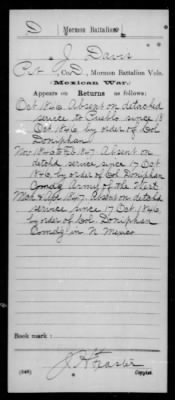 D Mormon Battalion
J Davis
Pvt, Co. D, Mormon Battalion Vols.
Mexican War.
Appears on Returns as follows:
Oct 1846. Absent on detached
service to Pueblo since 18
Oct 1846 by order of Col
Doniphan
Nov 1846 to Feb 1847. Absent on
detchd service since 17 Oct
1846, by order of Col Doniphan
Comdg Army of the West
Mch & Apr 1847. Absent on detchd
service since 17 Oct 1846
by order of Col. Doniphan
Comdg in N Mexico
Book mark:
(546) Copyist.